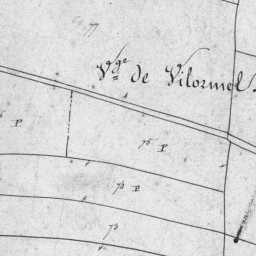 77
V.ge de Vilormel
P
75 P
74 P
73